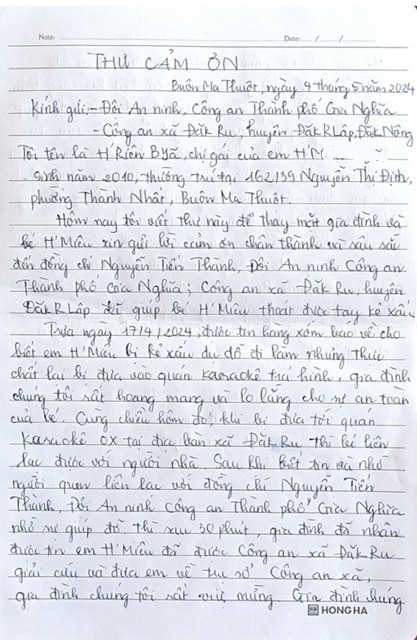 Note: Date: / /
THƯ CẢM ƠN
Buôn Ma Thuột, ngày 4 tháng 5 năm 2024
Kính gửi: - Đội An ninh, Công an Thành phố Gia Nghĩa
- Công an xã Đăk Ru, huyện Đăk RLấp, Đăk Nông
Tôi tên là H'Riên Byă, chị gái của em H'M...
Sinh năm 2010, thường trú tại 162/39 Nguyễn Thị Định,
phường Thành Nhất, Buôn Ma Thuột.
Hôm nay tôi viết thư này để thay mặt gia đình và
bé H'Miêu xin gửi lời cảm ơn chân thành và sâu sắc
đến đồng chí Nguyễn Tiến Thành, Đội An ninh Công an
Thành phố Gia Nghĩa; Công an xã Đăk Ru, huyện
Đăk RLấp đã giúp bé H'Miêu thoát được tay kẻ xấu
Trưa ngày 17/4/2024, được tin hàng xóm báo về cho
biết em H'Miêu bị kẻ xấu dụ dỗ đi làm nhưng thực
chất lại bị đưa vào quán karaoke trá hình, gia đình
chúng tôi rất hoang mang và lo lắng cho sự an toàn
của bé. Cũng chiều hôm đó, khi bị đưa tới quán
Karaoke OX tại địa bàn xã Đăk Ru thì bé liên
lạc được với người nhà. Sau khi biết tin và nhờ
người quen liên lạc với đồng chí Nguyễn Tiến
Thành, Đội An ninh Công an Thành phố Gia Nghĩa
nhờ sự giúp đỡ thì sau 30 phút, gia đình đã nhận
được tin em H'Miêu đã được Công an xã Đăk Ru
giải cứu và đưa em về trụ sở Công an xã,
gia đình chúng tôi rất vui mừng. Gia đình chúng
HONG HA